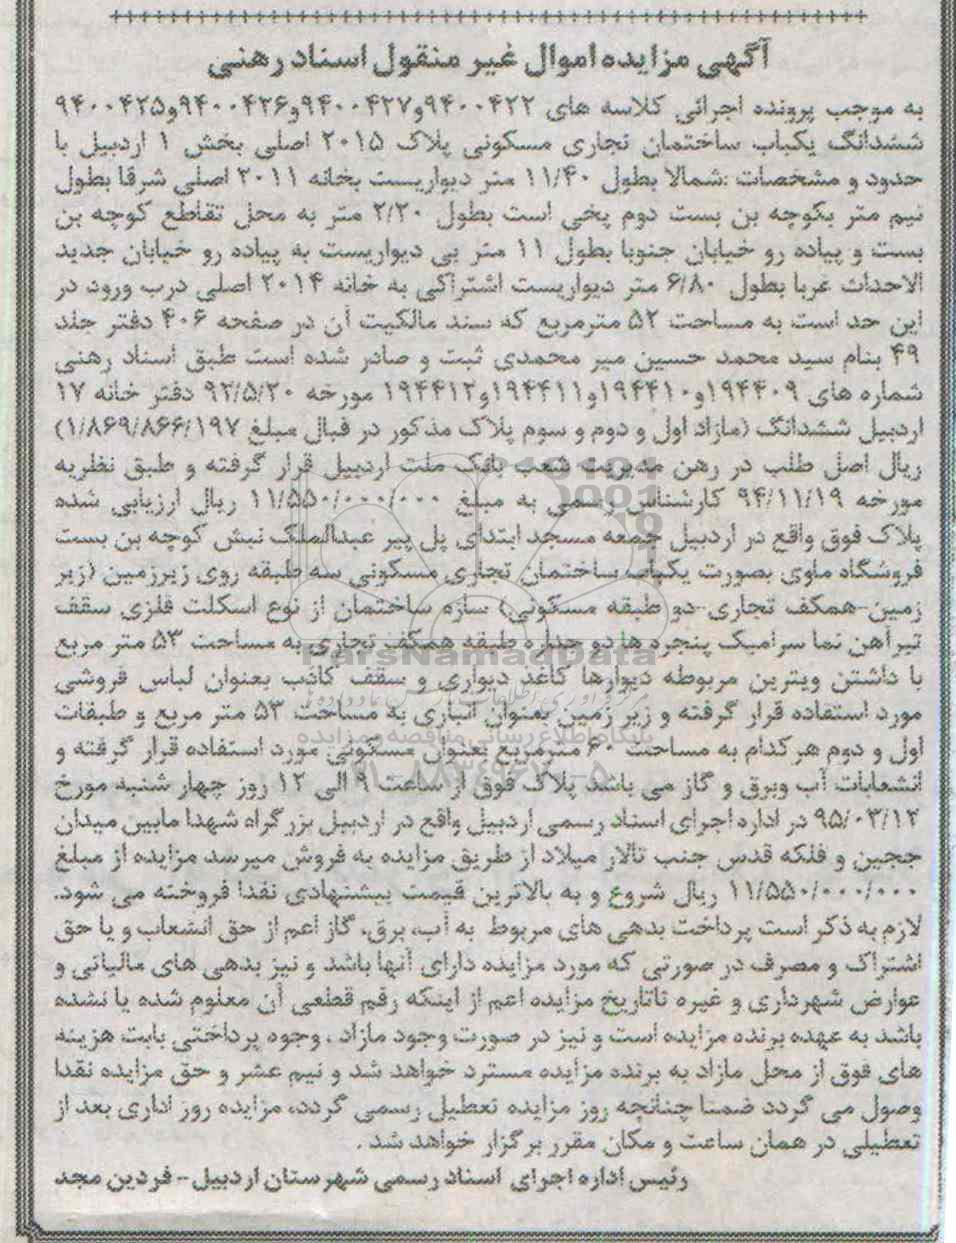 آگهی مزایده اموال غیر منقول اسناد رهنی
به موجب پرونده اجرائی کلاسه های ۹۴۰۰۴۲۲و۹۴۰۰۴۲۷و۹۴۰۰۴۲۶و۹۴۰۰۴۲۵
ششدانگ یکباب ساختمان تجاری مسکونی پلاک ۲۰۱۵ اصلی بخش ۱ اردبیل با
حدود و مشخصات :شمالا بطول ۱۱/۴۰ متر دیواریست بخانه ۲۰۱۱ اصلی شرقا بطول
نیم متر بکوچه بن بست دوم پخی است بطول ۲/۲۰ متر به محل تقاطع کوچه بن
بست و پیاده رو خیابان جنوبا بطول ۱۱ متر پی دیواریست به پیاده رو خیابان جدید
الاحداث غربا بطول ۶/۸۰ متر دیواریست اشتراکی به خانه ۲۰۱۴ اصلی درب ورود در
این حد است به مساحت ۵۲ مترمربع که سند مالکیت آن در صفحه ۴۰۶ دفتر جلد
۴۹ بنام سید محمد حسین میر محمدی ثبت و صادر شده است طبق اسناد رهنی
شماره های ۱۹۴۴۰۹و۱۹۴۴۱۰و۱۹۴۴۱۱و۱۹۴۴۱۲ مورخه ۹۲/۵/۲۰ دفتر خانه ۱۷
اردبیل ششدانگ (مازاد اول و دوم و سوم پلاک مذکور در قبال مبلغ ۱/۸۶۹/۸۶۶/۱۹۷)
ریال اصل طلب در رهن مدیریت شعب بانک ملت اردبیل قرار گرفته و طبق نظریه
مورخه ۹۴/۱۱/۱۹ کارشناس رسمی به مبلغ ۱۱/۵۵۰/۰۰۰/۰۰۰ ریال ارزیابی شده
پلاک فوق واقع در اردبیل جمعه مسجد ابتدای پل پیر عبدالملک نبش کوچه بن بست
فروشگاه ماوی بصورت یکباب ساختمان تجاری مسکونی سه طبقه روی زیرزمین (زیر
زمین-همکف تجاری-دو طبقه مسکونی) سازه ساختمان از نوع اسکلت فلزی سقف
تیرآهن نما سرامیک پنجره ها دو جداره طبقه همکف تجاری به مساحت ۵۳ متر مربع
با داشتن ویترین مربوطه دیوارها کاغذ دیواری و سقف کاذب بعنوان لباس فروشی
مورد استفاده قرار گرفته و زیر زمین بعنوان انباری به مساحت ۵۳ متر مربع و طبقات
اول و دوم هر کدام به مساحت ۶۰ مترمربع بعنوان مسکونی مورد استفاده قرار گرفته و
انشعابات آب وبرق و گاز می باشد پلاک فوق از ساعت ۹ الی ۱۲ روز چهار شنبه مورخ
۹۵/۰۳/۱۲ در اداره اجرای اسناد رسمی اردبیل واقع در اردبیل بزرگراه شهدا مابین میدان
ججین و فلکه قدس جنب تالار میلاد از طریق مزایده به فروش میرسد مزایده از مبلغ
۱۱/۵۵۰/۰۰۰/۰۰۰ ریال شروع و به بالاترین قیمت پیشنهادی نقدا فروخته می شود.
لازم به ذکر است پرداخت بدهی های مربوط به آب، برق، گاز اعم از حق انشعاب و یا حق
اشتراک و مصرف در صورتی که مورد مزایده دارای آنها باشد و نیز بدهی های مالیاتی و
عوارض شهرداری و غیره تاتاریخ مزایده اعم از اینکه رقم قطعی آن معلوم شده یا نشده
باشد به عهده برنده مزایده است و نیز در صورت وجود مازاد ، وجوه پرداختی بابت هزینه
های فوق از محل مازاد به برنده مزایده مسترد خواهد شد و نیم عشر و حق مزایده نقدا
وصول می گردد ضمنا چنانچه روز مزایده تعطیل رسمی گردد، مزایده روز اداری بعد از
تعطیلی در همان ساعت و مکان مقرر برگزار خواهد شد .
رئیس اداره اجرای اسناد رسمی شهرستان اردبیل- فردین مجد
ParsNamadData
پایگاه اطلاع رسانی مناقصه و مزایده
۰۲۱-۸۸۳۴۹۶۷۰-۵